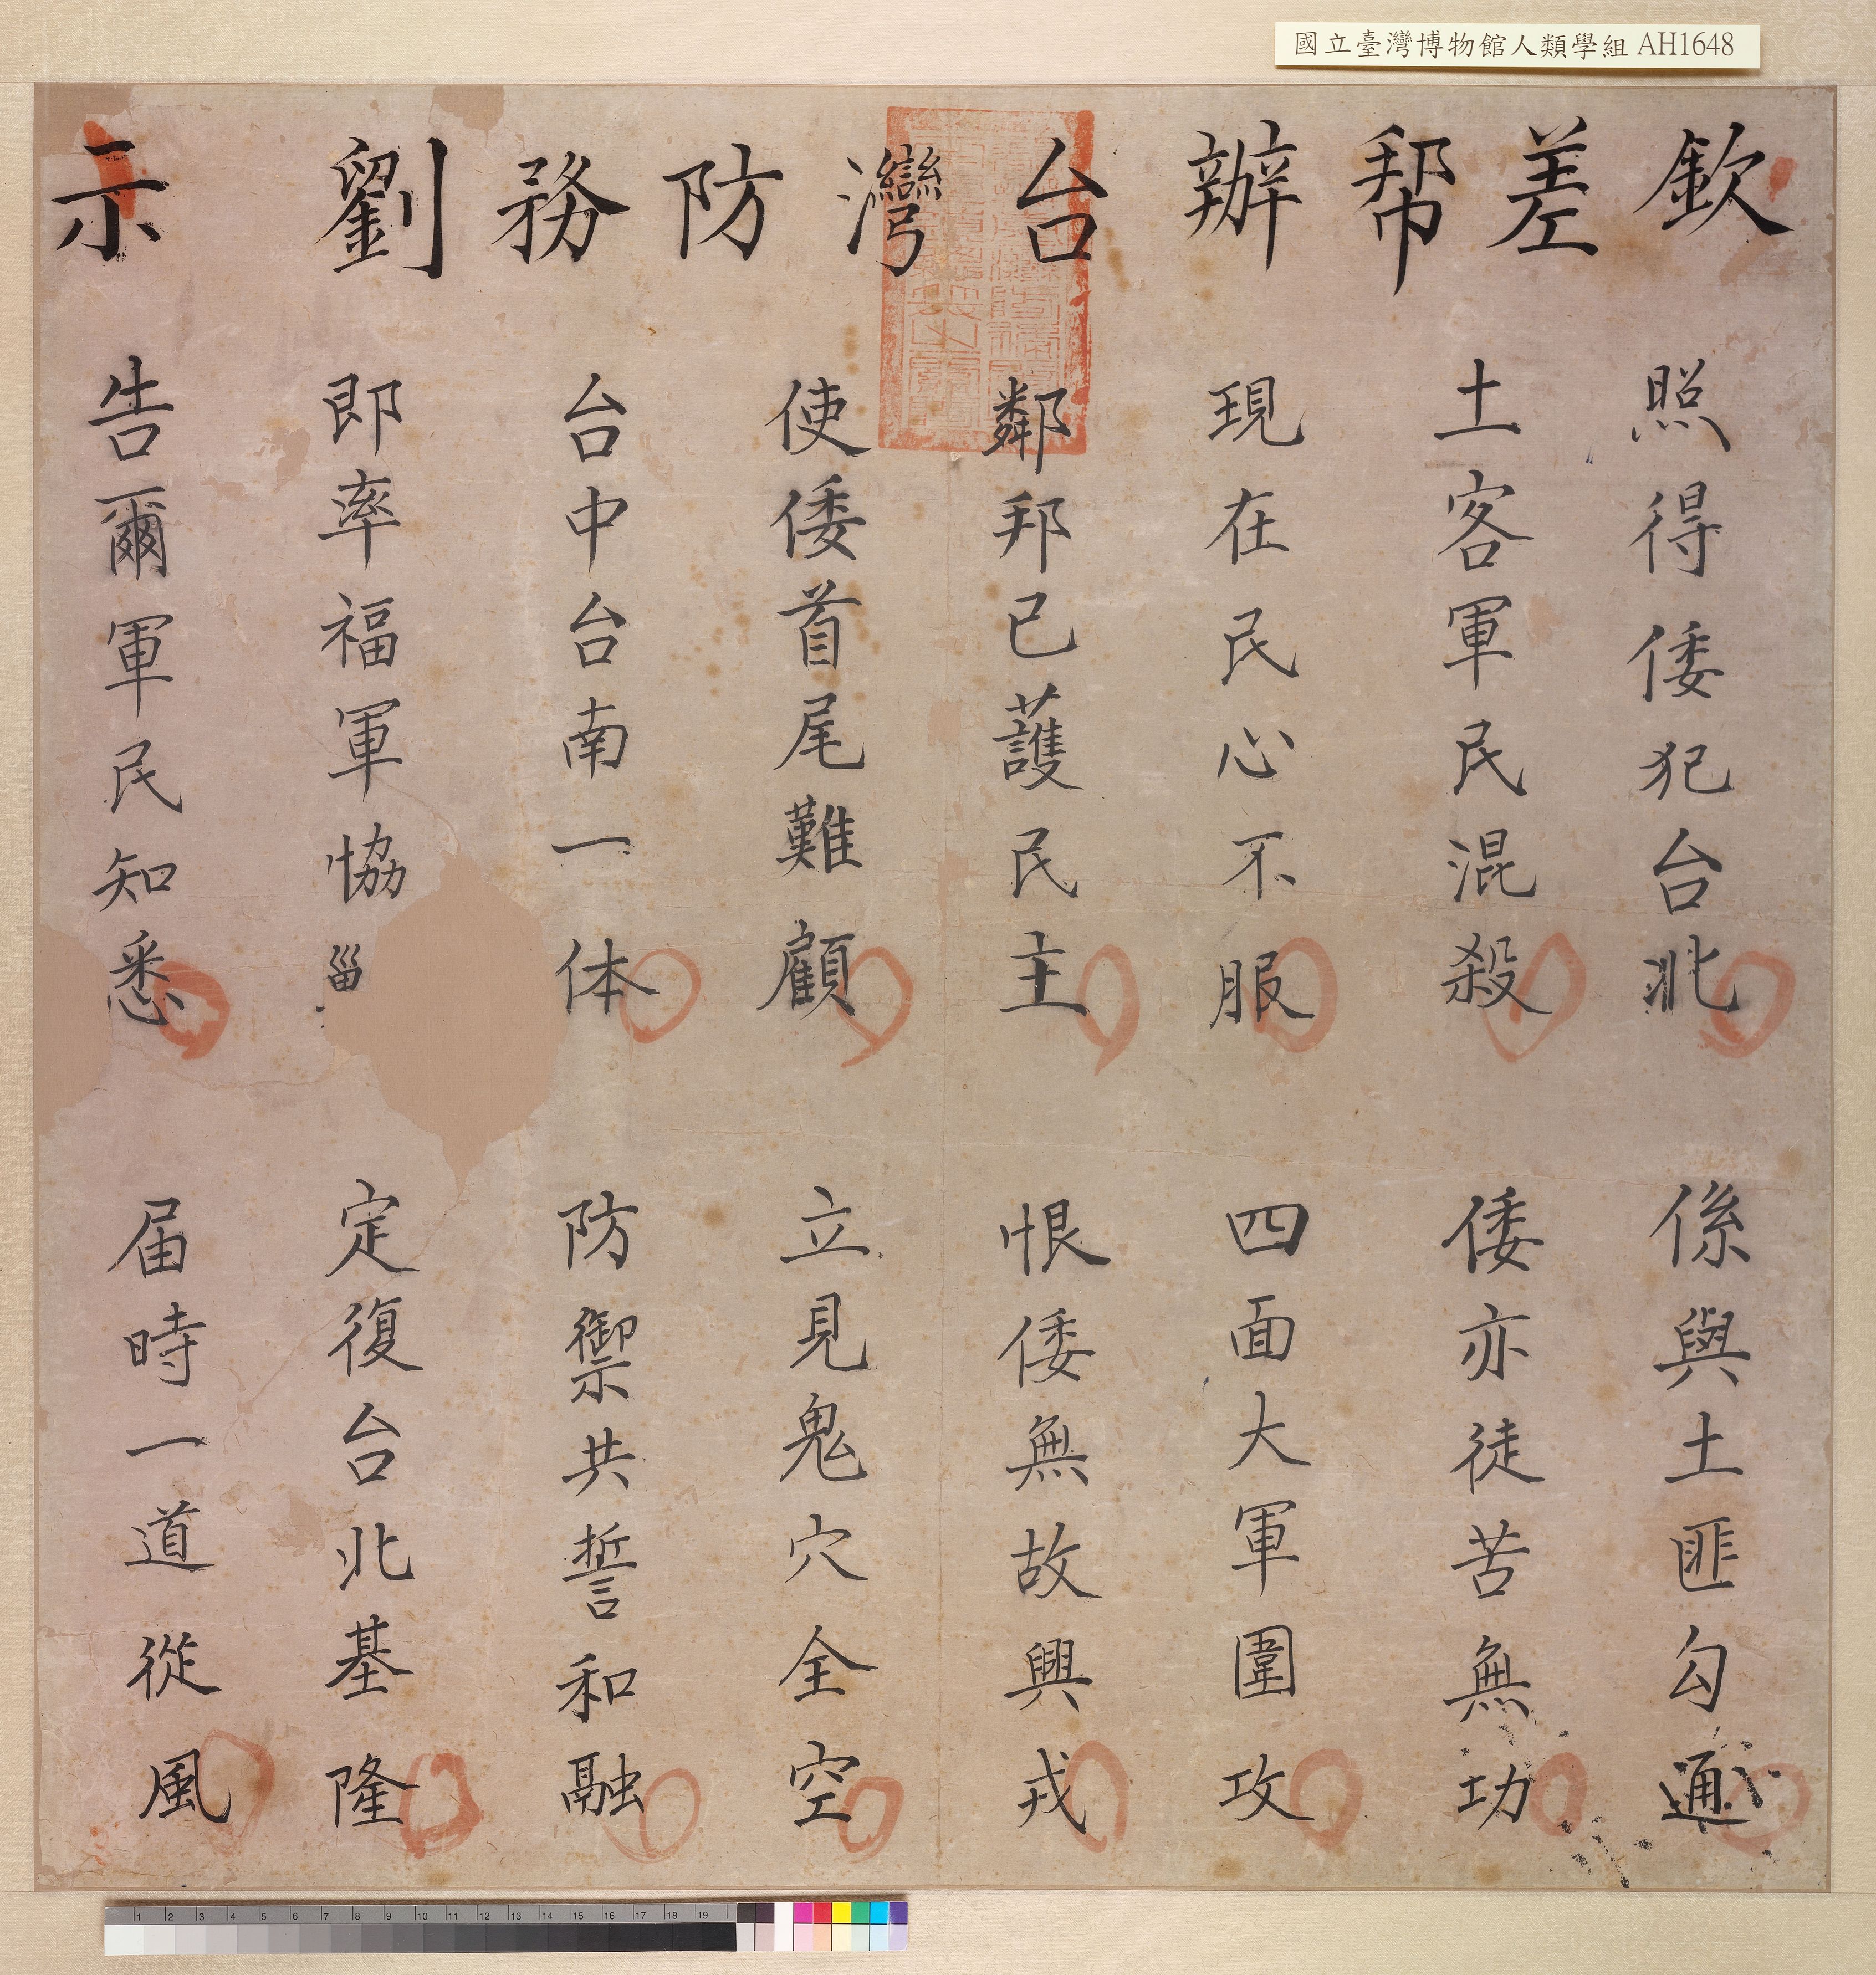 國立臺灣博物館人類學組 AH1648
欽差幫辦台灣防務劉示
照得倭犯台北 係與土匪勾通
土客軍民混殺 倭亦徒苦無功
現在民心不服 四面大軍圍攻
鄰邦已護民主 恨倭無故興戎
使倭首尾難顧 立見鬼穴全空
台中台南一体 防禦共誓和融
即率福軍恊 定復台北基隆
告爾軍民知悉 届時一道從風
1 2 3 4 5 6 7 8 9 10 11 12 13 14 15 16 17 18 19